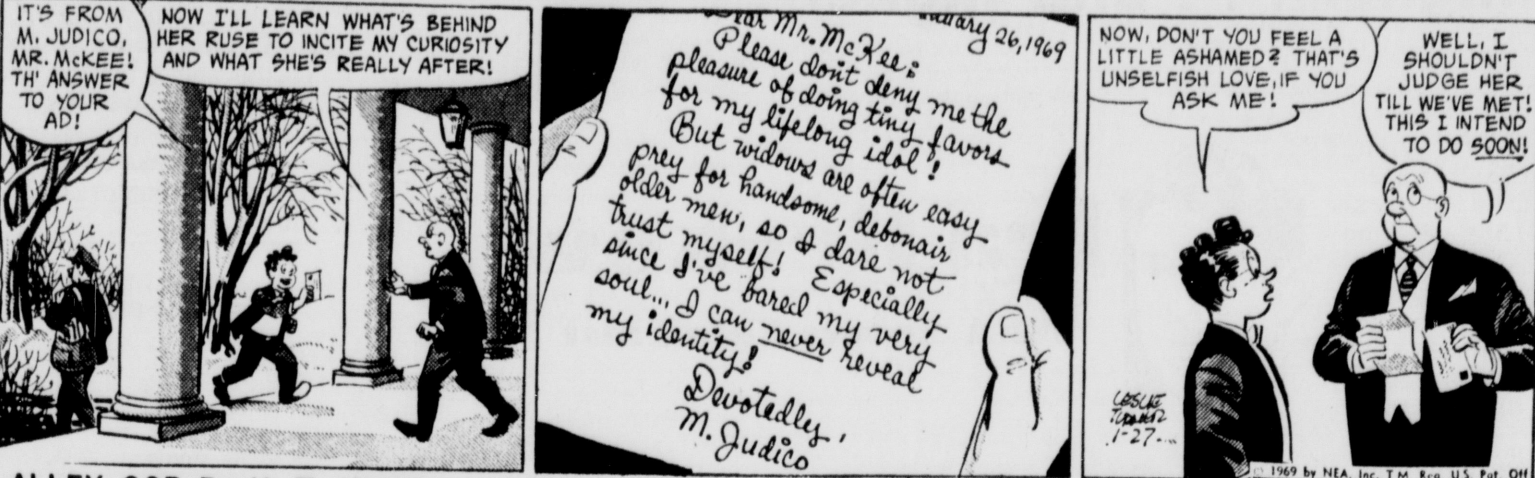 IT'S FROM
M. JUDICO,
MR. McKEE!
TH' ANSWER
TO YOUR
AD!
NOW I'LL LEARN WHAT'S BEHIND
HER RUSE TO INCITE MY CURIOSITY
AND WHAT SHE'S REALLY AFTER!
26, 1969
Mr. McKee:
Please don't deny me the
pleasure of doing tiny favors
for my lifelong idol!
But widows are often easy
prey for handsome, debonair
older men, so I dare not
trust myself! Especially
since I've bared my very
soul... I can never reveal
my identity!
Devotedly,
M. Judico
NOW, DON'T YOU FEEL A
LITTLE ASHAMED? THAT'S
UNSELFISH LOVE, IF YOU
ASK ME!
WELL, I
SHOULDN'T
JUDGE HER
TILL WE'VE MET!
THIS I INTEND
TO DO SOON!
LESLIE
TURNER
1-27
© 1969 by NEA, Inc. T.M. Reg. U.S. Pat. Off.